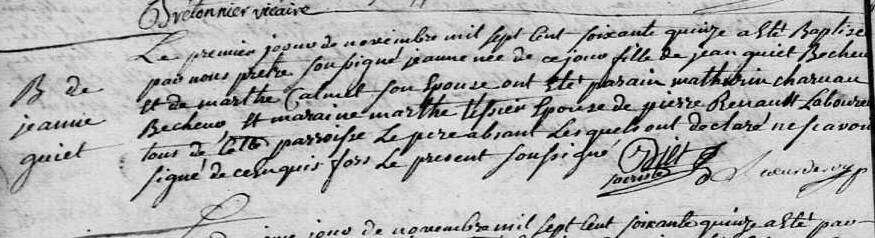 Bretonnier vicaire
B de
jeanne
quiet
Le premier jour de novembre mil sept cent soixante quinze a esté Baptisee
par nous pretre soussigné jeanne née de ce jour fille de jean quiet Becheur
et de marthe Calmel son Epouse ont esté parain mathurin charuau
Becheur et maraine marthe tessier Epouse de pierre Renault Laboureur
tous de cette parroisse Le pere absant Lesquels ont declaré ne scavoir
signé de ce enquis fors Le present soussigné
jour de novembre mil sept cent soixante quinze a esté par